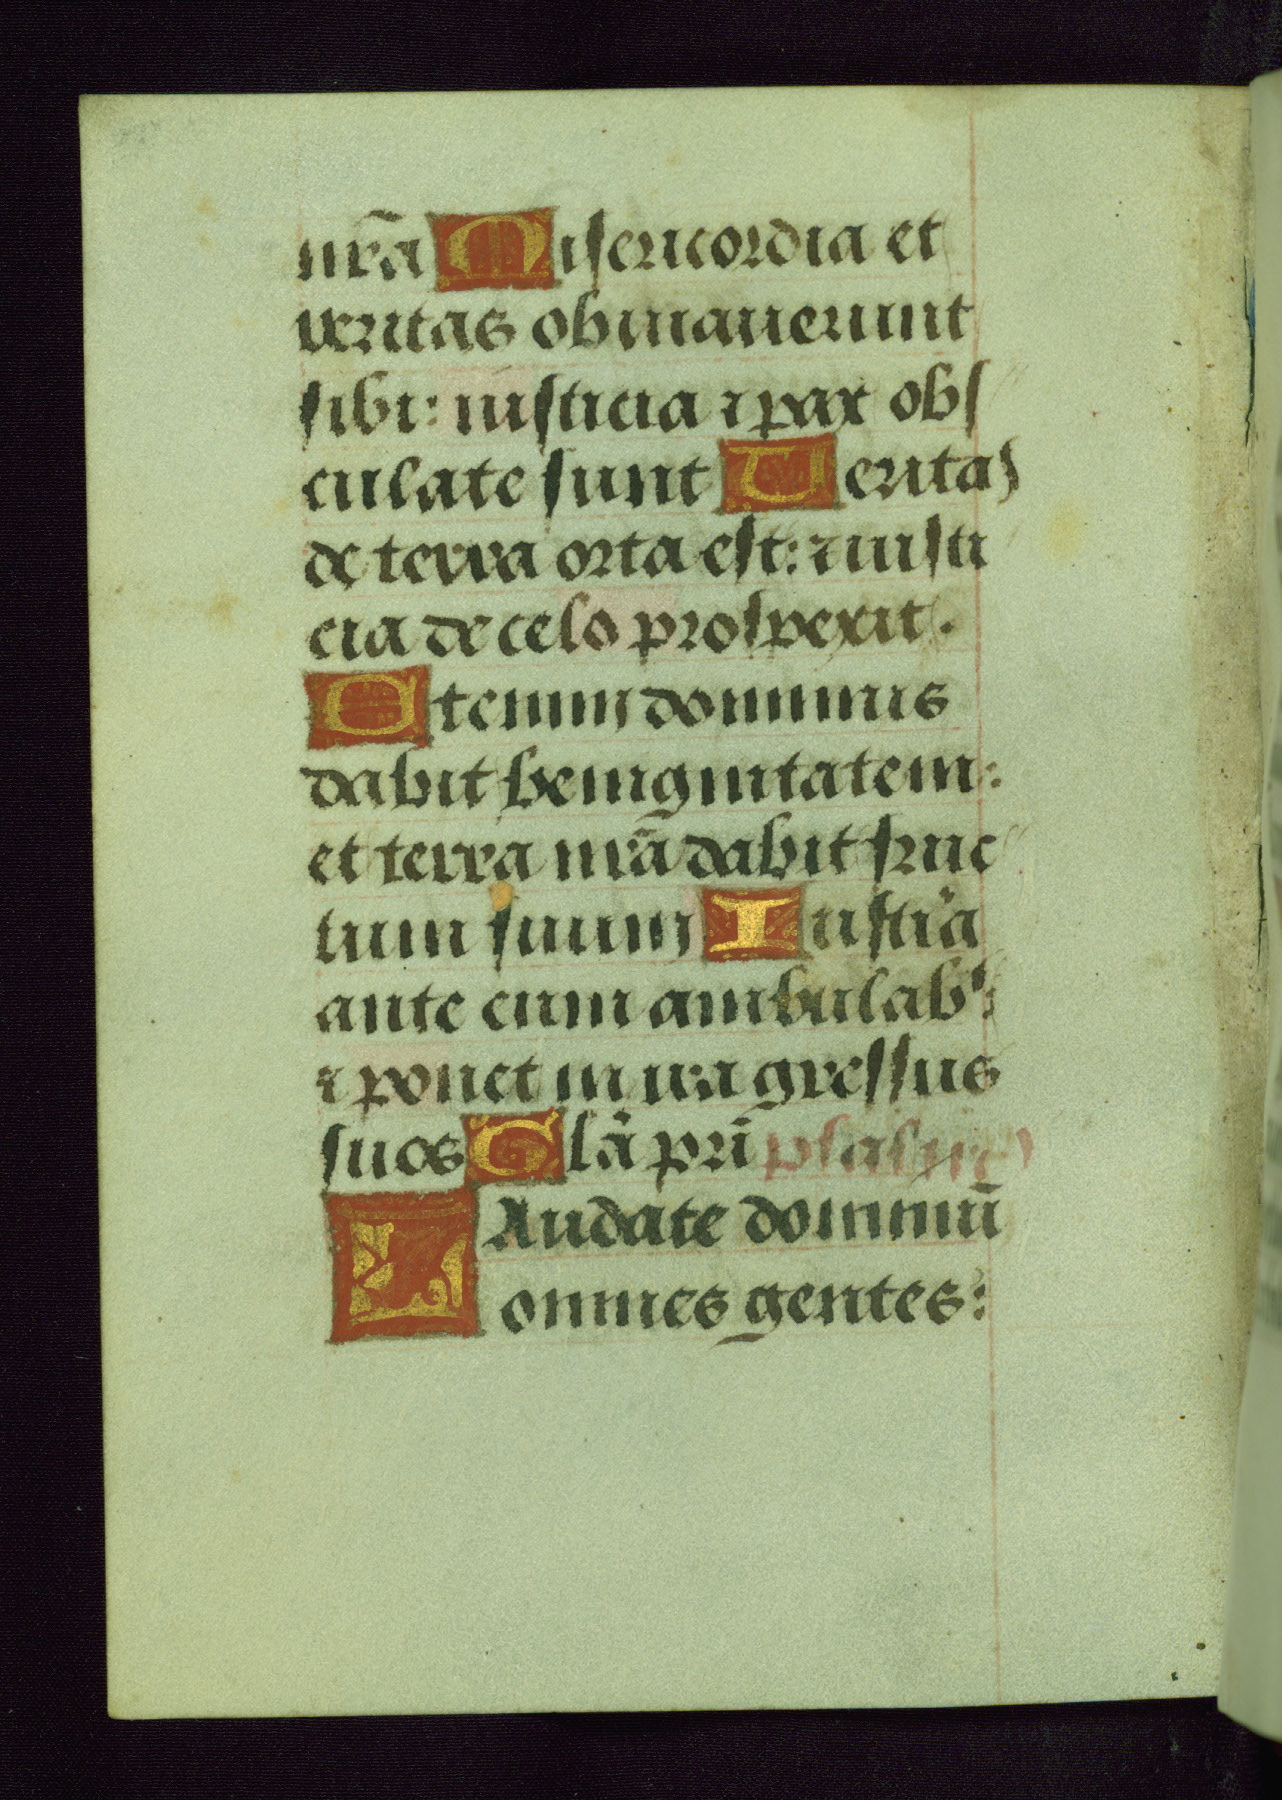 nr̃a Misericordia et
veritas obuiauerunt
sibi: iusticia ⁊ pax obs
culate sunt Veritas
de terra orta est: ⁊ iusti
cia de celo prospexit.
Etenim dominus
dabit benignitatem:
et terra nr̃a dabit fruc
tum suum Iustiã
ante eum ambulabᵗ:
⁊ ponet in via gressus
suos Glã pr̃i psalmꝰ
LAudate dominũ
omnes gentes: